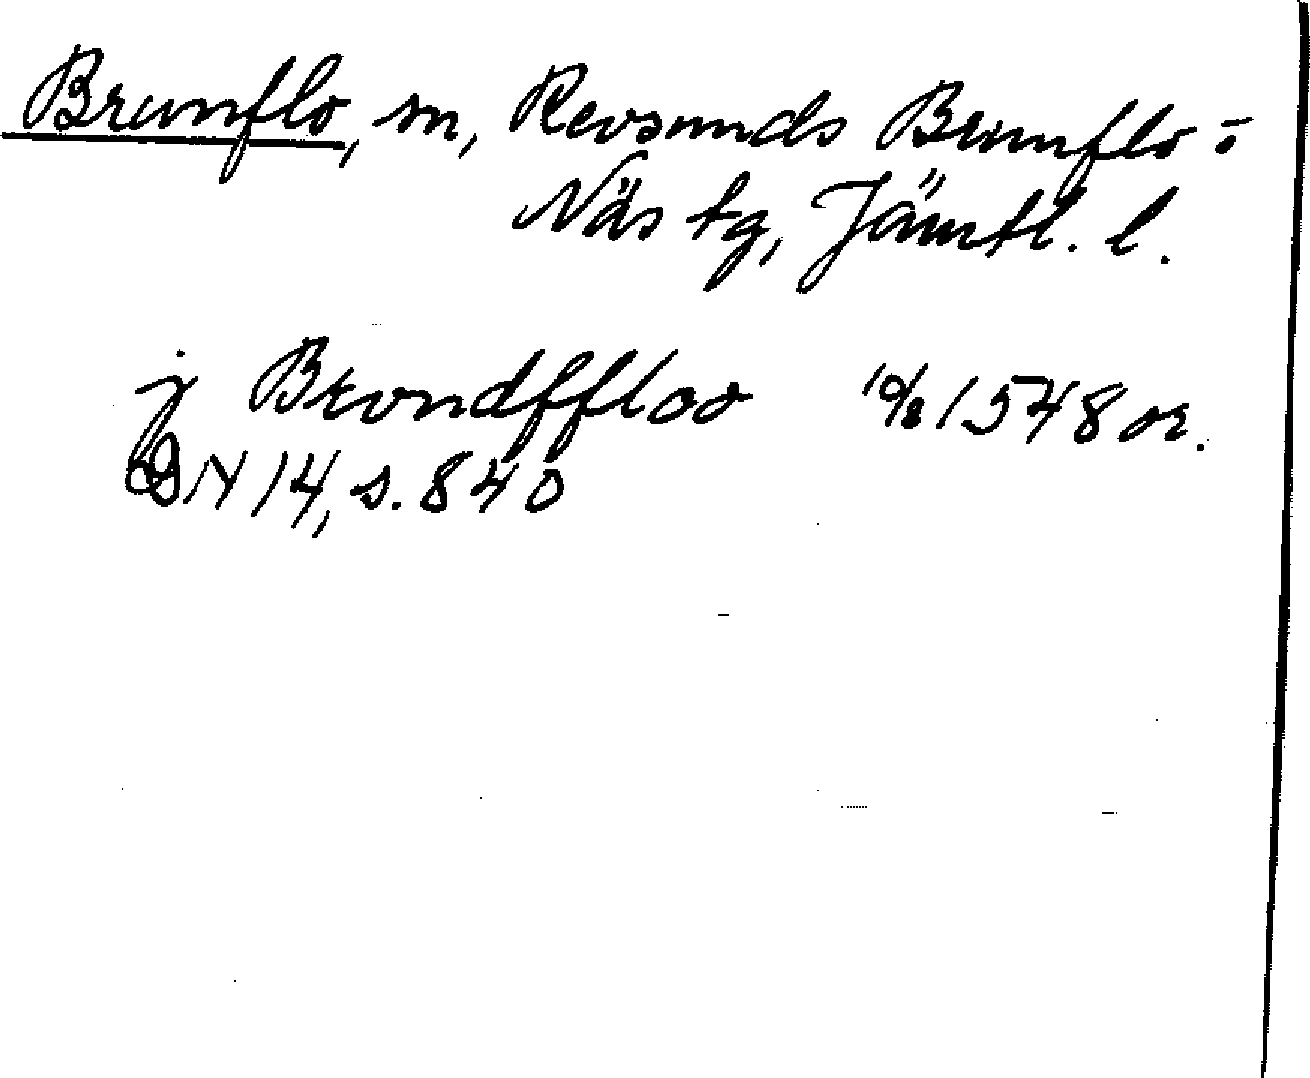 Brunflo, sn, Revsunds Brunflo o
Näs tg, Jämtl. l.
j Brondffloo 10/8 1548 or.
DN 14, s. 840